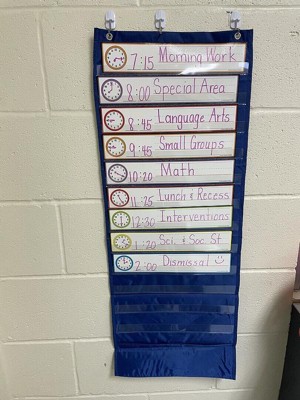 7:15 Morning Work
8:00 Special Area
8:45 Language Arts
9:45 Small Groups
10:20 Math
11:25 Lunch & Recess
12:30 Interventions
1:20 Sci. & Soc. St
2:00 Dismissal